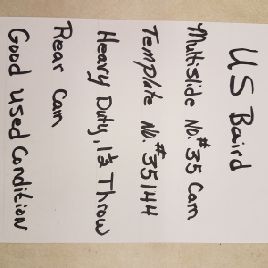 US Baird
Multislide No.# 35 Cam
Template No.# 35144
Heavy Duty, 1½ Throw
Rear Cam
Good Used Condition